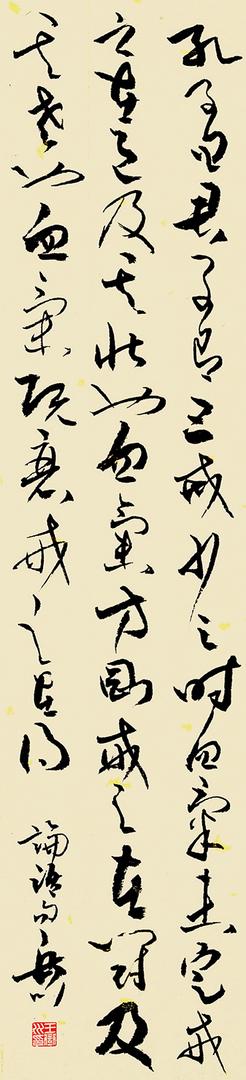 孔子曰君子有三戒少之時血氣未定戒
之在色及其壯也血氣方剛戒之在鬥及
其老也血氣既衰戒之在得
論語句